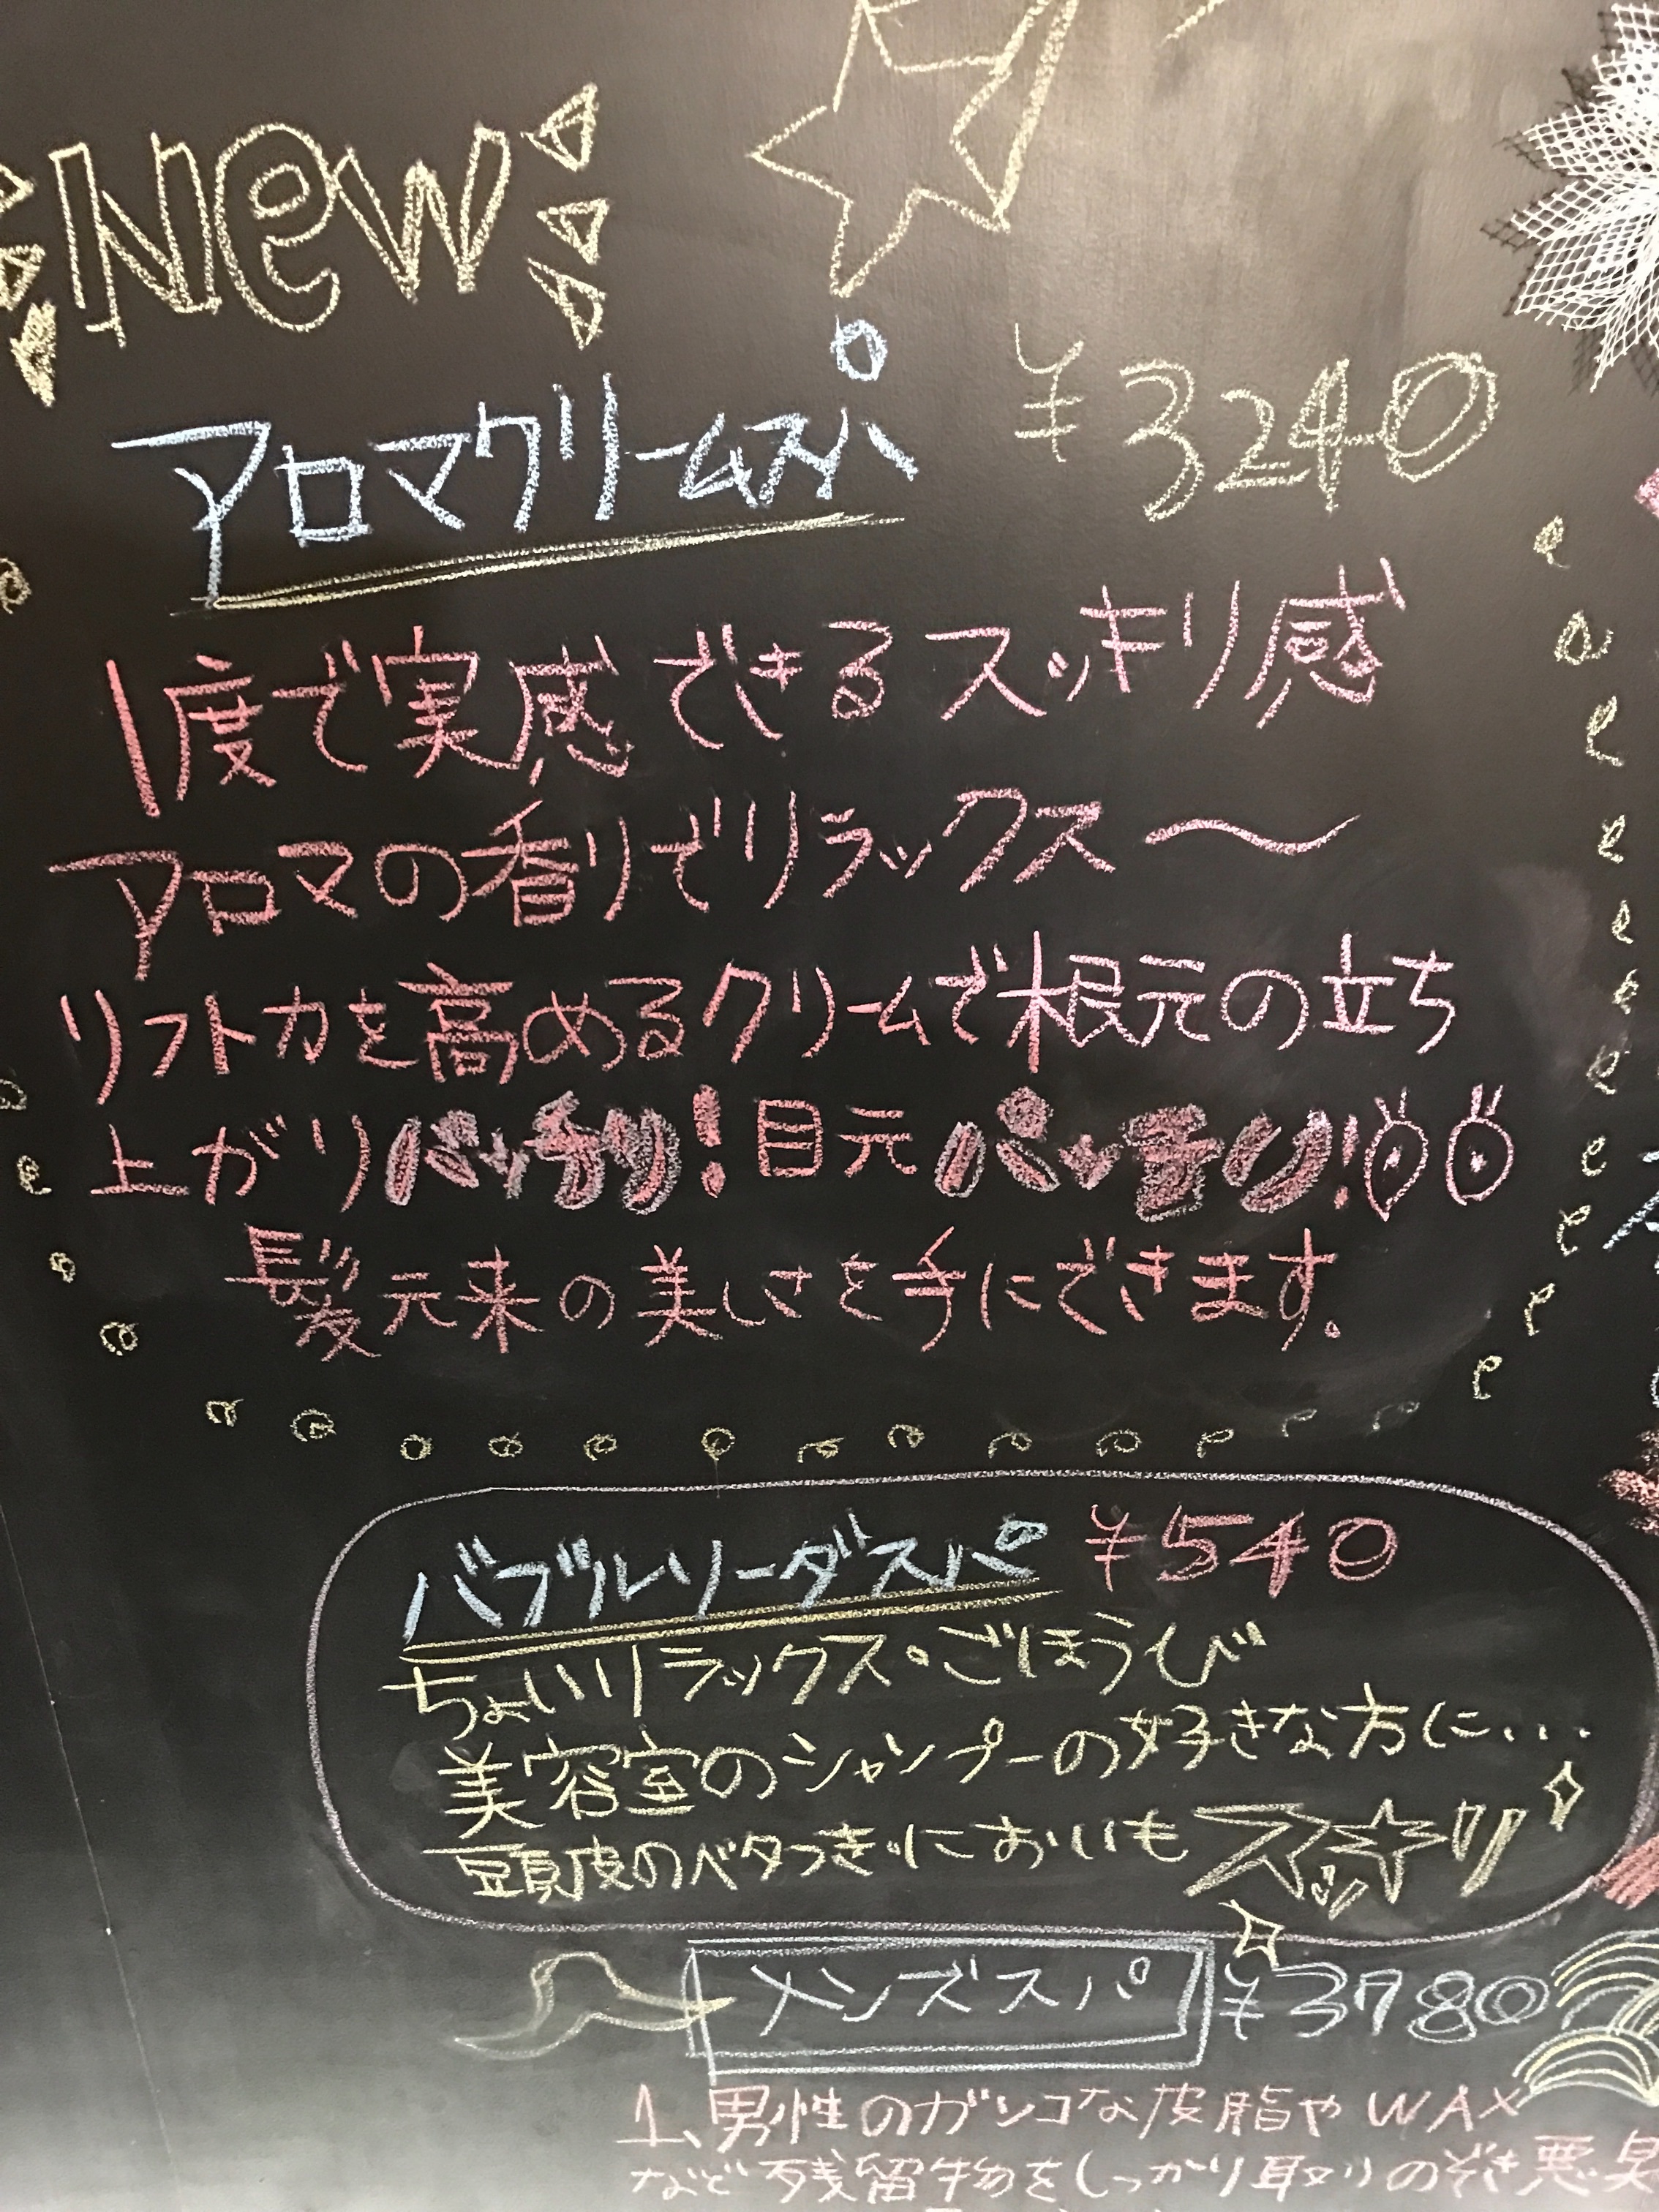 New
アロマクリームスパ ¥3240
1度で実感できるスッキリ感
アロマの香りでリラックス〜
リフト力を高めるクリームで根元の立ち
上がりバッチリ!目元パッチリ!
髪元来の美しさを手にできます。
バブルソーダスパ ¥540
ちょいリラックス・ごほうび
美容室のシャンプーの好きな方に...
頭皮のベタつきにおいもスッキリ
メンズスパ ¥3780
1、男性のガンコな皮脂やWAX
など残留物をしっかり取りのぞき悪臭